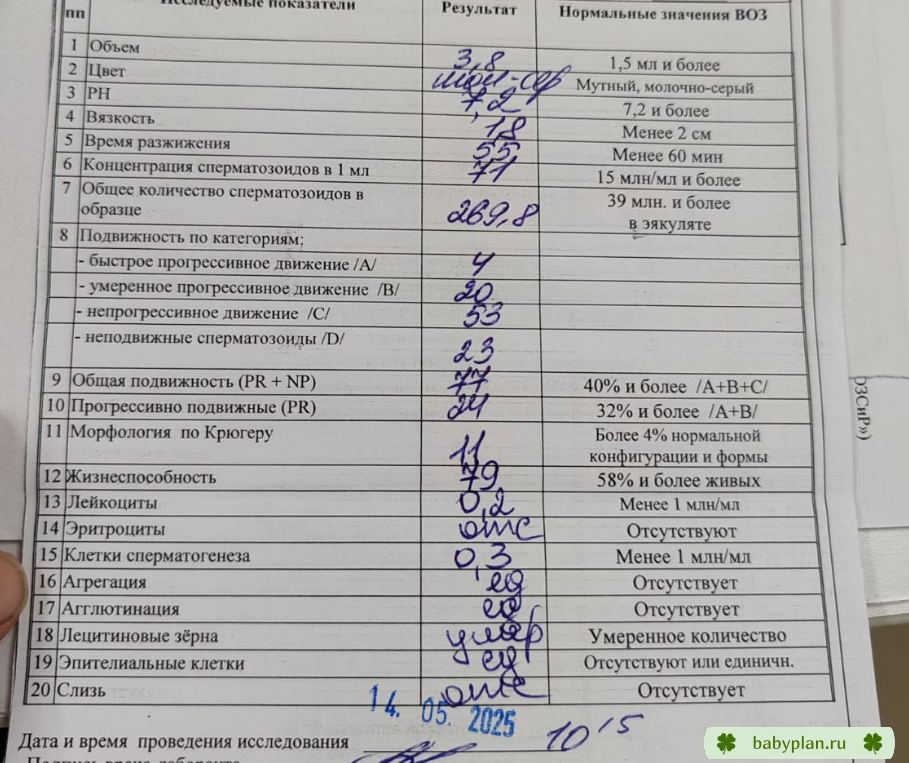 пп Исследуемые показатели Результат Нормальные значения ВОЗ
1 Объем 3,8 1,5 мл и более
2 Цвет мол-сер Мутный, молочно-серый
3 РН 7,2 7,2 и более
4 Вязкость 1,8 Менее 2 см
5 Время разжижения 55 Менее 60 мин
6 Концентрация сперматозоидов в 1 мл 71 15 млн/мл и более
7 Общее количество сперматозоидов в
образце 269,8 39 млн. и более
в эякуляте
8 Подвижность по категориям:
- быстрое прогрессивное движение /А/ 4
- умеренное прогрессивное движение /В/ 20
- непрогрессивное движение /С/ 53
- неподвижные сперматозоиды /D/ 23
9 Общая подвижность (PR + NP) 77 40% и более /А+В+С/
10 Прогрессивно подвижные (PR) 24 32% и более /А+В/
11 Морфология по Крюгеру 11 Более 4% нормальной
конфигурации и формы
12 Жизнеспособность 79 58% и более живых
13 Лейкоциты 0,2 Менее 1 млн/мл
14 Эритроциты отс Отсутствуют
15 Клетки сперматогенеза 0,3 Менее 1 млн/мл
16 Агрегация ед Отсутствует
17 Агглютинация ед Отсутствует
18 Лецитиновые зёрна умер Умеренное количество
19 Эпителиальные клетки ед Отсутствуют или единичн.
20 Слизь отс Отсутствует
14. 05. 2025
Дата и время проведения исследования 10 15
ОЗСиР»)
babyplan.ru